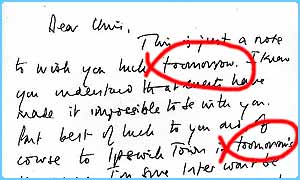 Dear Chris,
This is just a note
to wish you luck toomorrow. I know
you understand that events have
made it impossible to be with you.
But best of luck to you and of
course to Ipswich Town toomorrow's
I'm sure Inter won't be